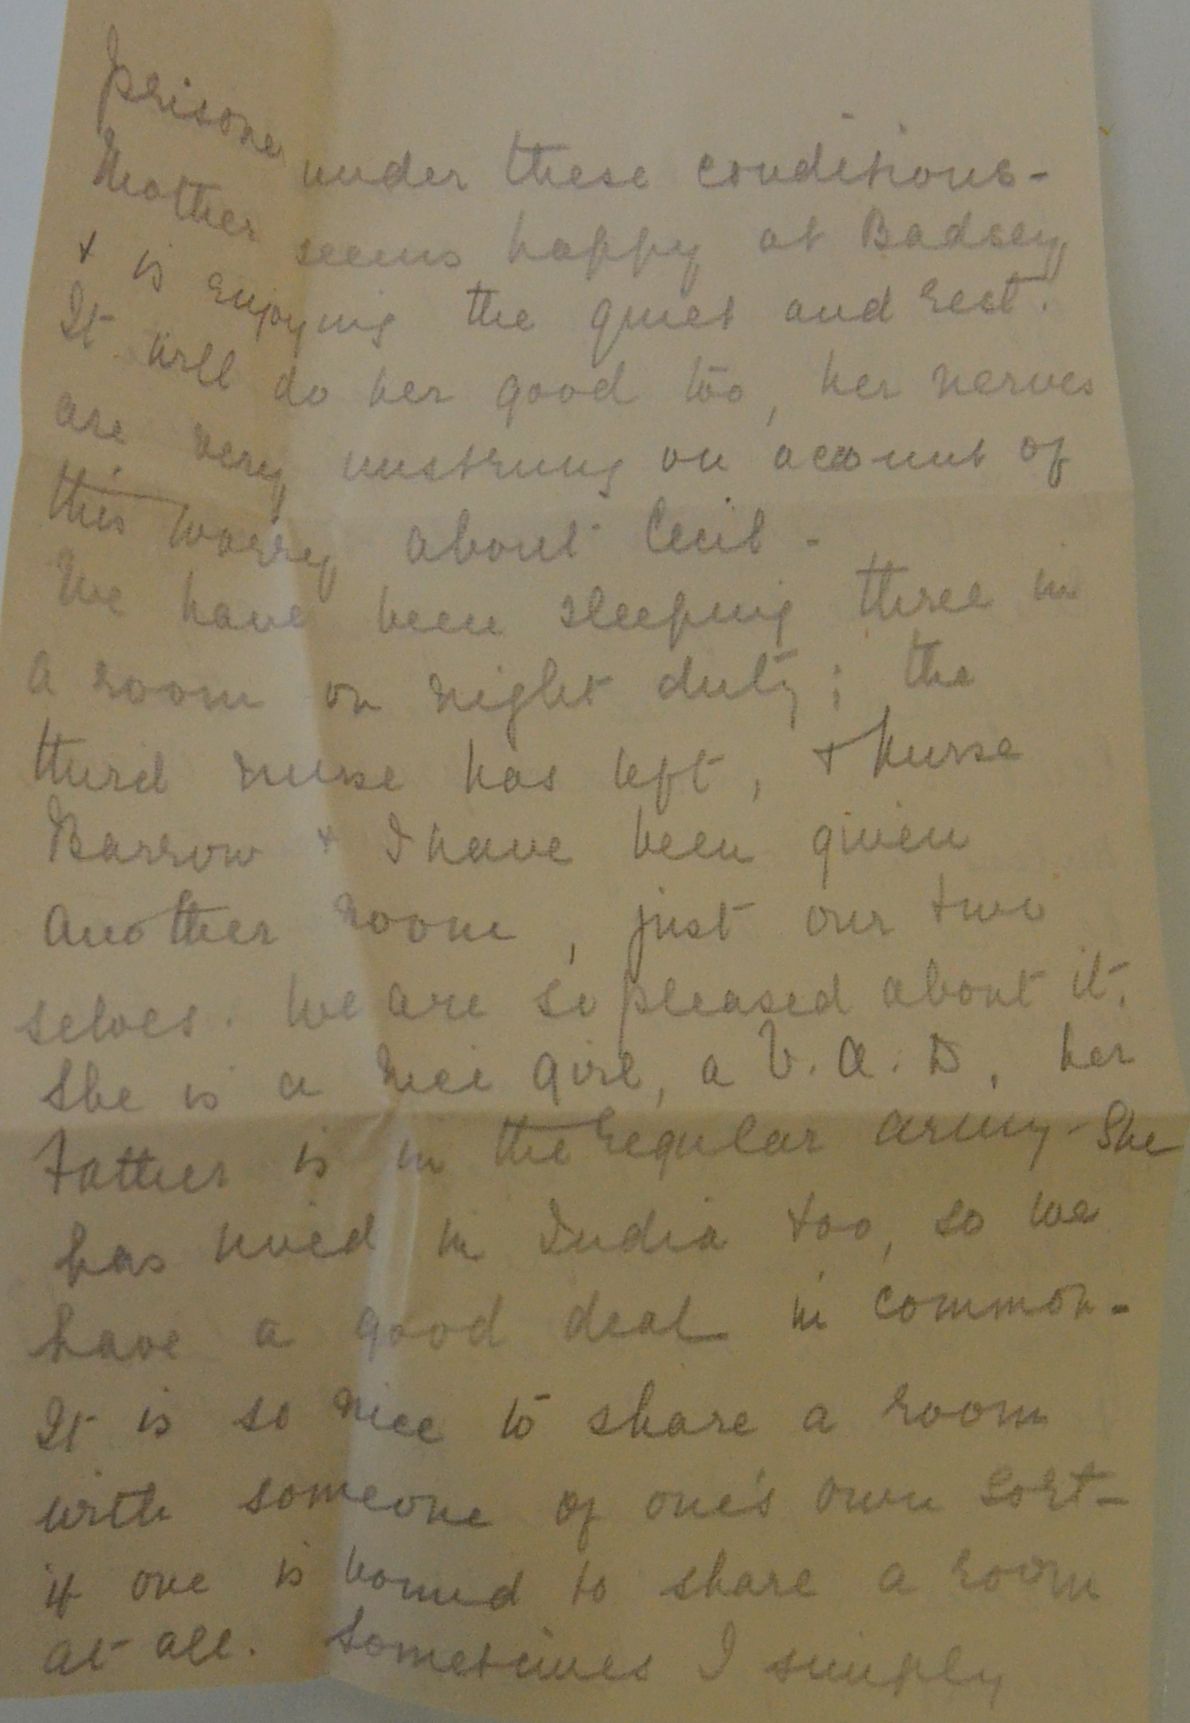 prisoner under these conditions -
Mother seems happy at Badsey,
+ is enjoying the quiet and rest.
It will do her good too, her nerves
are very unstrung on account of
this worry about Cecil -
We have been sleeping three in
a room on night duty; the
third nurse has left, + Nurse
Barrow + I have been given
another room, just our two
selves. We are so pleased about it.
She is a nice girl, a V.A.D, her
Father is in the regular army - She
has lived in India too, so we
have a good deal in common -
It is so nice to share a room
with someone of one's own sort -
if one is bound to share a room
at all. Sometimes I simply